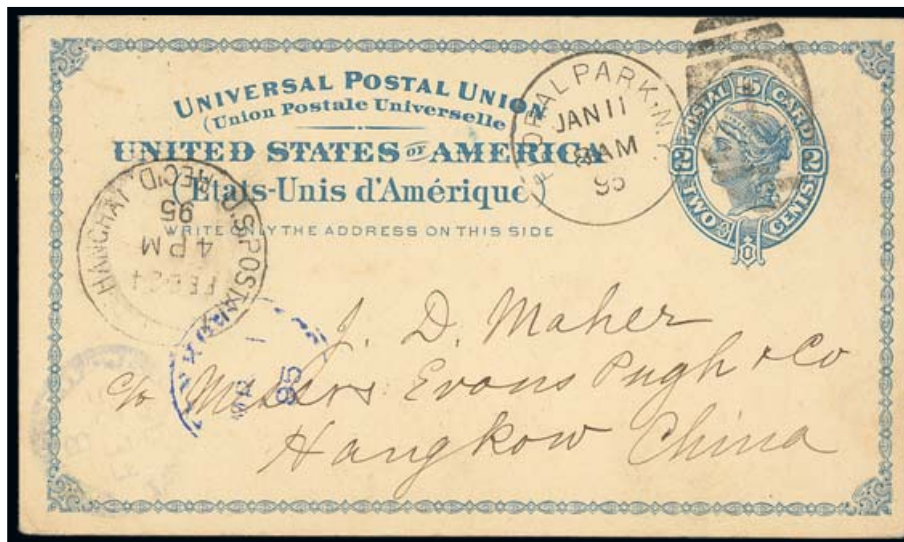 UNIVERSAL POSTAL UNION
(Union Postale Universelle)
UNITED STATES OF AMERICA
(États-Unis d'Amérique)
WRITE ONLY THE ADDRESS ON THIS SIDE
POSTAL CARD
2 TWO CENTS 2
PARK. N.
JAN 11
AM
U.S. POST
REC'D.
FEB 24
4 PM
95
95
J. D. Maher
c/o Messrs Evans Pugh & Co
Hangkow China